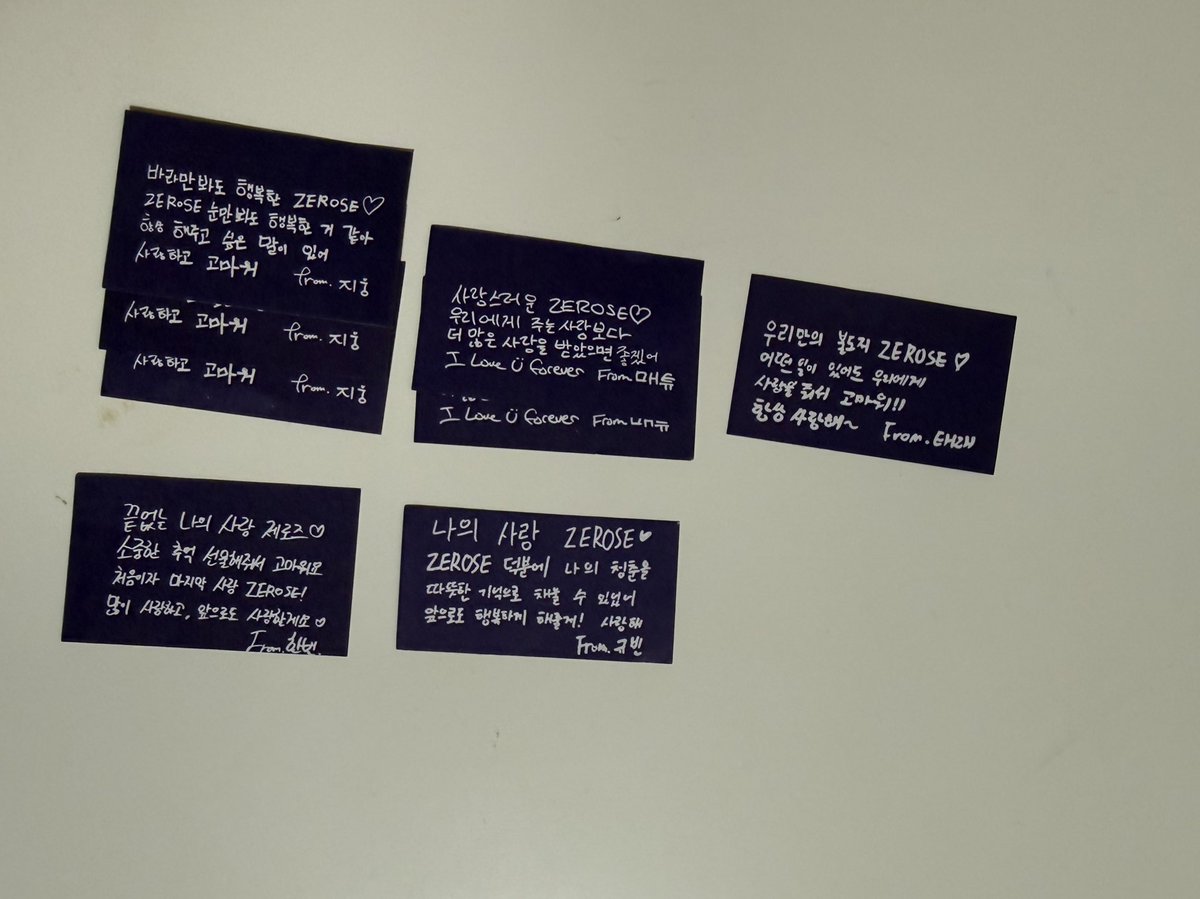 바라만봐도 행복한 ZEROSE♡
ZEROSE 눈만봐도 행복한 거 같아
항상 해주고 싶은 말이 있어
사랑하고 고마워 from. 지웅
사랑하고 고마워 from. 지웅
사랑하고 고마워 from. 지웅
사랑스러운 ZEROSE♡
우리에게 주는사랑보다
더 많은 사랑을 받았으면 좋겠어
I Love Ü forever From 매튜
I Love Ü forever From 매튜
우리만의 복도지 ZEROSE♡
어떤 일이 있어도 우리에게
사랑을 줘서 고마워!!
항상 사랑해~ From. 태래
끝없는 나의 사랑 제로즈♡
소중한 추억 선물해줘서 고마워요
처음이자 마지막 사랑 ZEROSE!
많이 사랑하고, 앞으로도 사랑할게요♡
From. 한빈.
나의 사랑 ZEROSE♥
ZEROSE 덕분에 나의 청춘을
따뜻한 기억으로 채울 수 있었어
앞으로도 행복하게 해줄게! 사랑해
From. 규빈